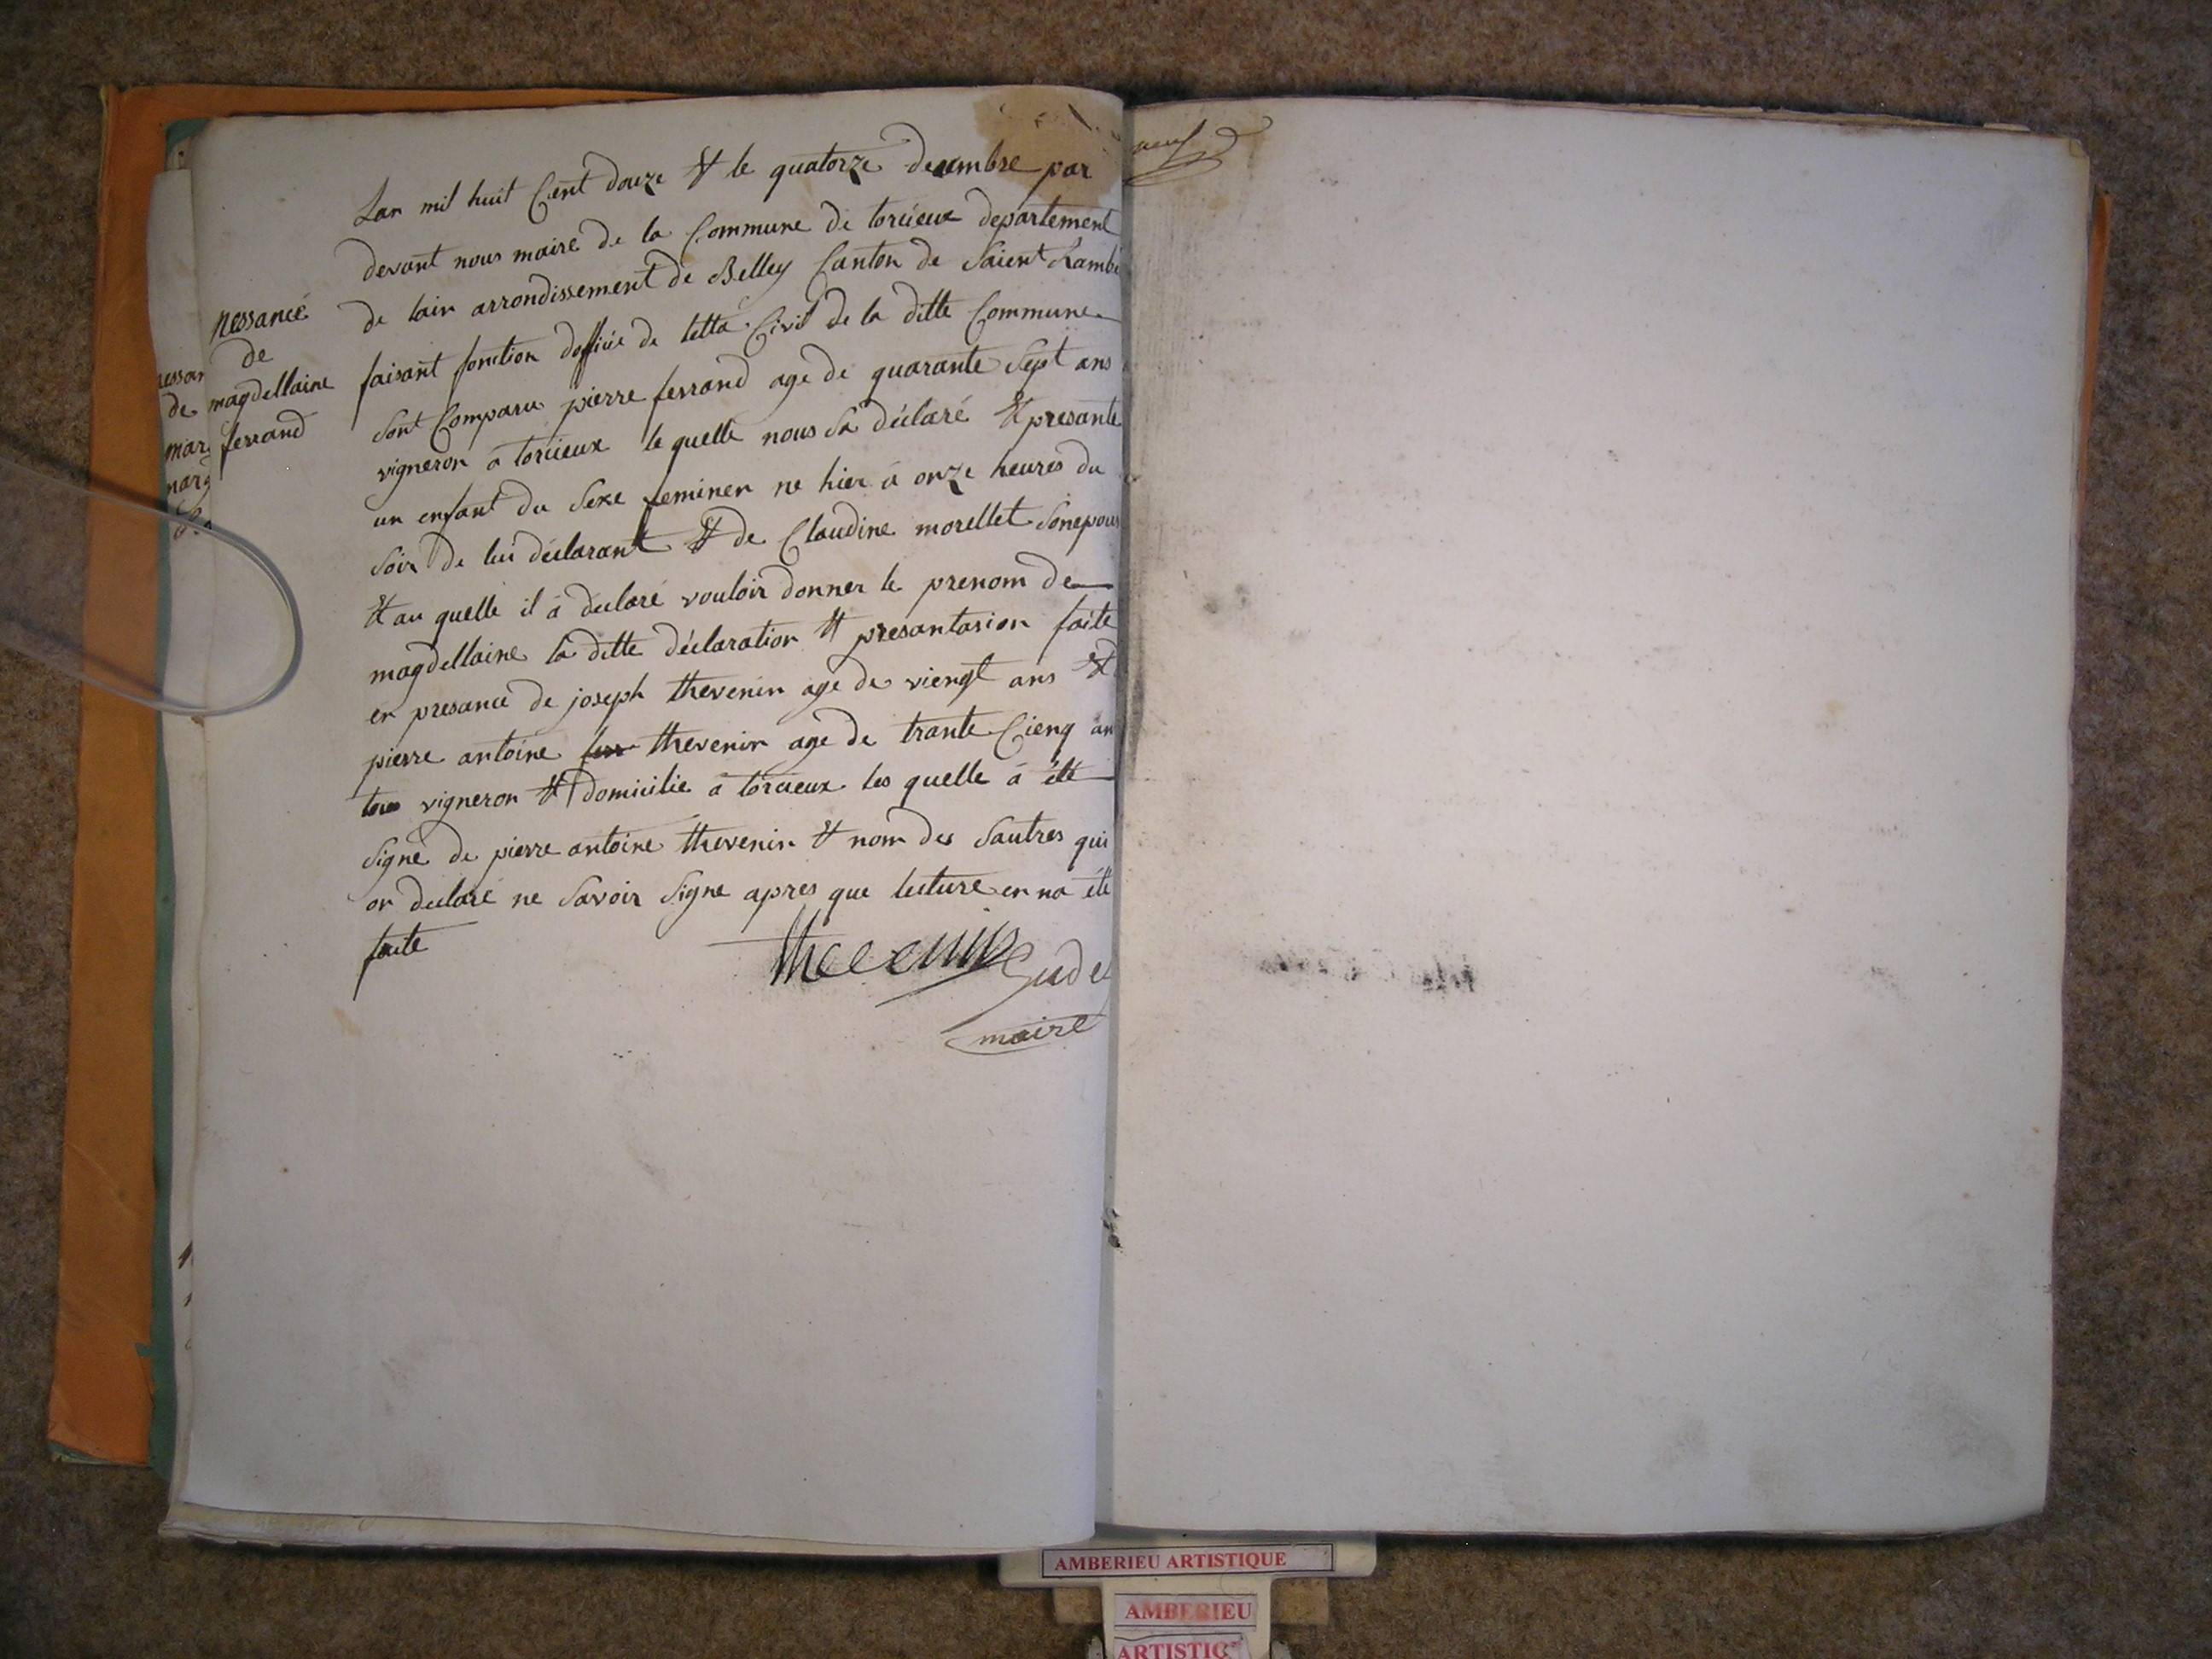 nessance
de
magdellaine
ferrand
Lan mil huit Cent douze & le quatorze decembre par
devant nous maire de la Commune de torcieux departement
de lain arrondissement de Belley Canton de Saient Rambe
faisant fonction doffice de letta Civil de la ditte Commune
sont Comparu pierre ferrand age de quarante Sept ans
vigneron à torcieux le quelle nous Sa déclaré & presante
un enfant du Sexe feminen ne hier à onze heures du
Soir de lui déclarant & de Claudine morellet Sonepous
& au quelle il à declaré vouloir donner le prenom de
magdellaine la ditte déclaration & presantasion faite
en presance de joseph thevenin age de viengt ans &
pierre antoine thevenin age de trante Cienq an
tous vigneron & domicilie à torcieux les quelle à été
Signé de pierre antoine thevenin & nom des Sautres qui
on declaré ne Savoir Signe apres que lecture en na été
faite
thevenin
maire
nessan
de
mar
marg
neuf
AMBERIEU ARTISTIQUE
AMBERIEU
ARTISTIQ